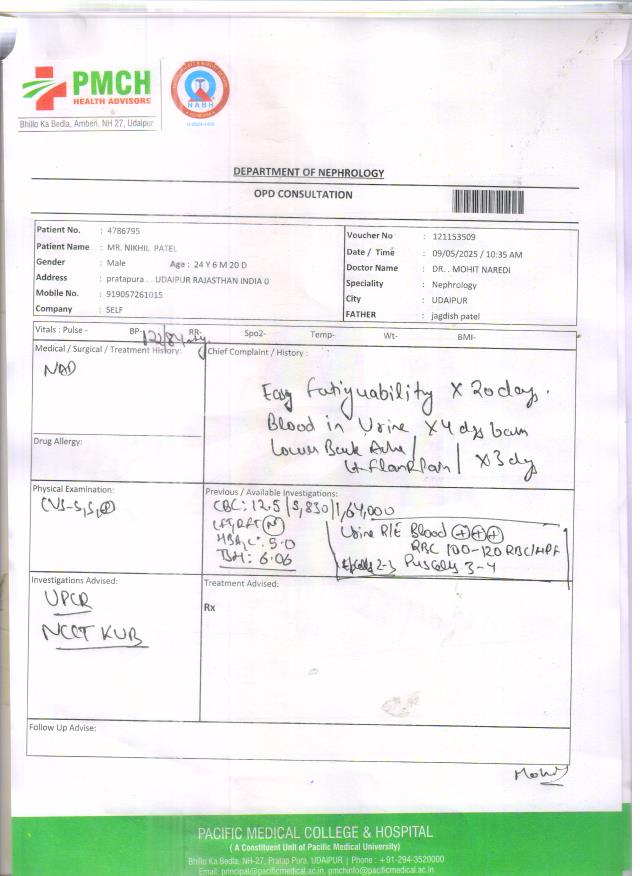 PMCH
HEALTH ADVISORS
Bhillo Ka Bedla, Amberi, NH 27, Udaipur
NABH
DEPARTMENT OF NEPHROLOGY
OPD CONSULTATION
Patient No. : 4786795
Patient Name : MR. NIKHIL PATEL
Gender : Male Age : 24 Y 6 M 20 D
Address : pratapura . . UDAIPUR RAJASTHAN INDIA 0
Mobile No. : 919057261015
Company : SELF
Voucher No : 121153509
Date / Time : 09/05/2025 / 10:35 AM
Doctor Name : DR. . MOHIT NAREDI
Speciality : Nephrology
City : UDAIPUR
FATHER : jagdish patel
Vitals : Pulse - BP- 122/84 RR- Spo2- Temp- Wt- BMI-
Medical / Surgical / Treatment History:
NAD
Drug Allergy:
Chief Complaint / History :
Easy Fatiguability X 20 days.
Blood in Urine X 4 dys
Lower Back Ache /
Lt. Flank Pain / X 3 dy
Physical Examination:
CVS-S₁S₂
Previous / Available Investigations:
CBC: 12.5 / 5,830 / 1,64,000
LFT, RFT (N)
HBA₁C: 5.0
TSH: 6.06
Urine R/E Blood +++
RBC 100-120 RBC/HPF
Epi Cells 2-3 Pus Cells 3-4
Investigations Advised:
UPCR
NCCT KUB
Treatment Advised:
Rx
Follow Up Advise:
PACIFIC MEDICAL COLLEGE & HOSPITAL
( A Constituent Unit of Pacific Medical University)
Bhillo Ka Bedla, NH-27, Pratap Pura, UDAIPUR | Phone : +91-294-3520000
Email: principal@pacificmedical.ac.in, pmchinfo@pacificmedical.ac.in